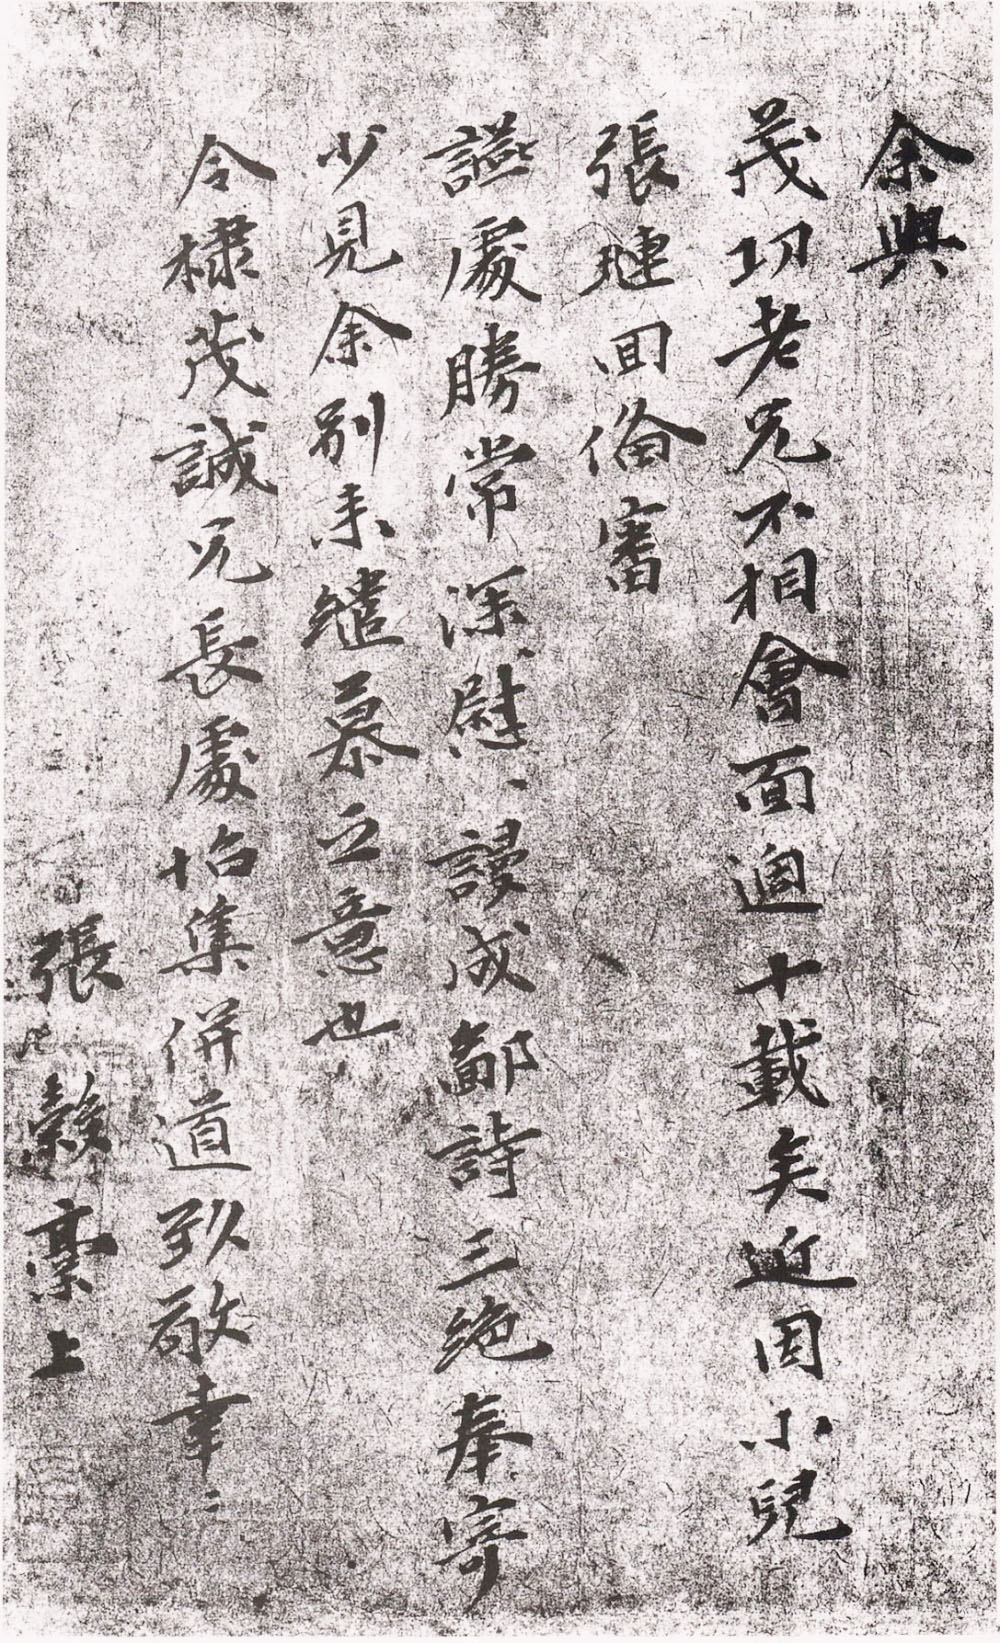 余與
茂切老兄不相會面過十載矣近因小兒
張璉回備審
讌處勝常深慰、謾成鄙詩三絕奉寄
少見余別來繾慕之意也
令棣茂誠兄長處怡集併道致敬幸〻
張縠稾上